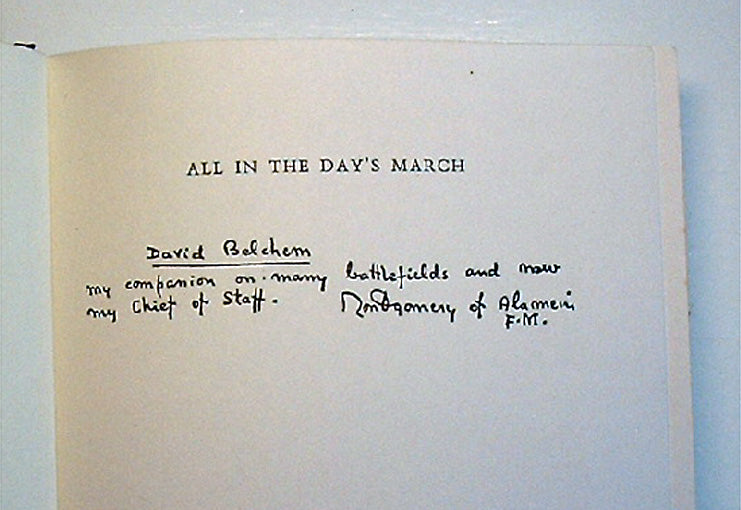 ALL IN THE DAY'S MARCH
David Belchem
my companion on many battlefields and now
my Chief of Staff. Montgomery of Alamein
F.M.